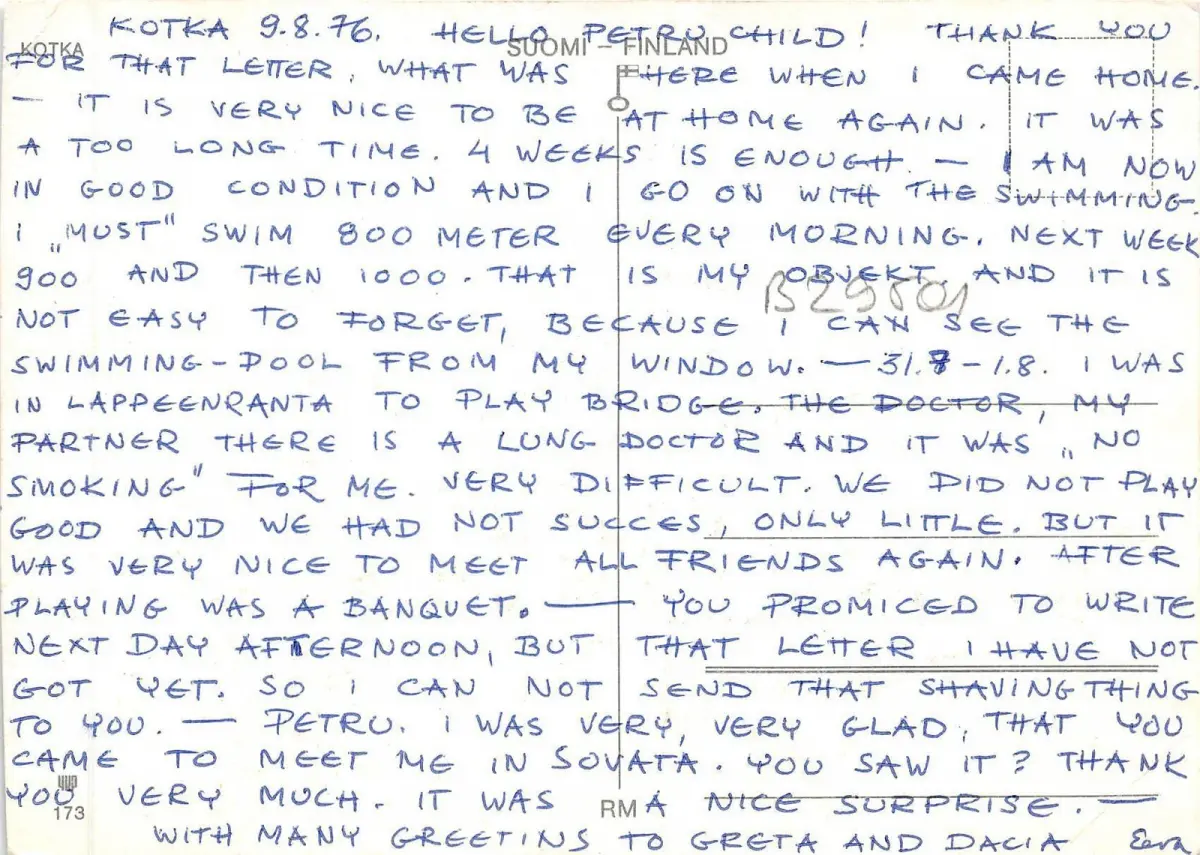 KOTKA 9.8.76. HELLO PETRU CHILD! THANK YOU
KOTKA
SUOMI – FINLAND
FOR THAT LETTER, WHAT WAS HERE WHEN I CAME HOME.
— IT IS VERY NICE TO BE AT HOME AGAIN. IT WAS
A TOO LONG TIME. 4 WEEKS IS ENOUGH. — I AM NOW
IN GOOD CONDITION AND I GO ON WITH THE SWIMMING.
I „MUST" SWIM 800 METER EVERY MORNING. NEXT WEEK
900 AND THEN 1000. THAT IS MY OBJEKT. AND IT IS
B29501
NOT EASY TO FORGET, BECAUSE I CAN SEE THE
SWIMMING-POOL FROM MY WINDOW. — 31.7 – 1.8. I WAS
IN LAPPEENRANTA TO PLAY BRIDGE. THE DOCTOR, MY
PARTNER THERE IS A LUNG DOCTOR AND IT WAS „NO
SMOKING" FOR ME. VERY DIFFICULT. WE DID NOT PLAY
GOOD AND WE HAD NOT SUCCES, ONLY LITTLE. BUT IT
WAS VERY NICE TO MEET ALL FRIENDS AGAIN. AFTER
PLAYING WAS A BANQUET. — YOU PROMICED TO WRITE
NEXT DAY AFTERNOON, BUT THAT LETTER I HAVE NOT
GOT YET. SO I CAN NOT SEND THAT SHAVING THING
TO YOU. — PETRU. I WAS VERY, VERY GLAD, THAT YOU
CAME TO MEET ME IN SOVATA. YOU SAW IT? THANK
YOU VERY MUCH. IT WAS A NICE SURPRISE. —
173
RM
WITH MANY GREETINS TO GRETA AND DACIA Eeva